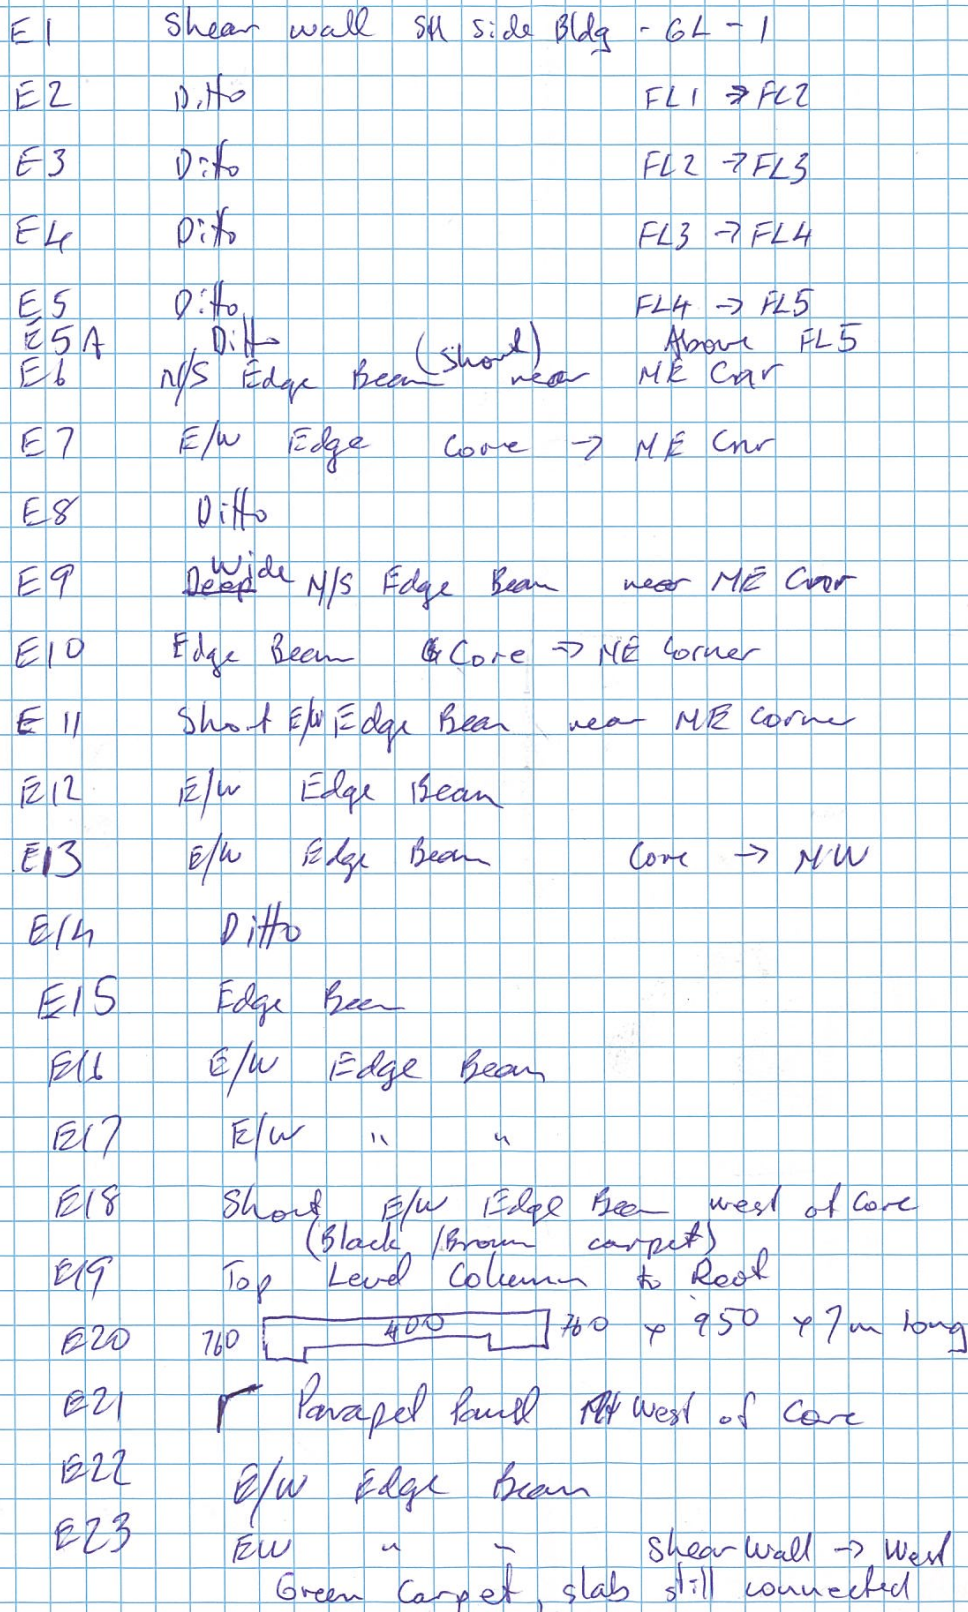 E1 Shear wall Sth Side Bldg - GL - 1
E2 Ditto FL1 → FL2
E3 Ditto FL2 → FL3
E4 Ditto FL3 → FL4
E5 Ditto FL4 → FL5
E5A Ditto Above FL5
E6 N/S Edge Beam (Short) near NE Cnr
E7 E/W Edge Core → NE Cnr
E8 Ditto
E9 Deep Wide N/S Edge Beam near NE Cnr
E10 Edge Beam Core → NE Corner
E11 Short E/W Edge Beam near NE Corner
E12 E/W Edge Beam
E13 E/W Edge Beam Core → NW
E14 Ditto
E15 Edge Beam
E16 E/W Edge Beam
E17 E/W " "
E18 Short E/W Edge Beam west of Core
(Black/Brown carpet)
E19 Top Level Column to Roof
E20 760 400 760 x 950 x 7m long
E21 Parapet Panel West of Core
E22 E/W Edge Beam
E23 EW " " Shear Wall → West
Green Carpet, slab still connected